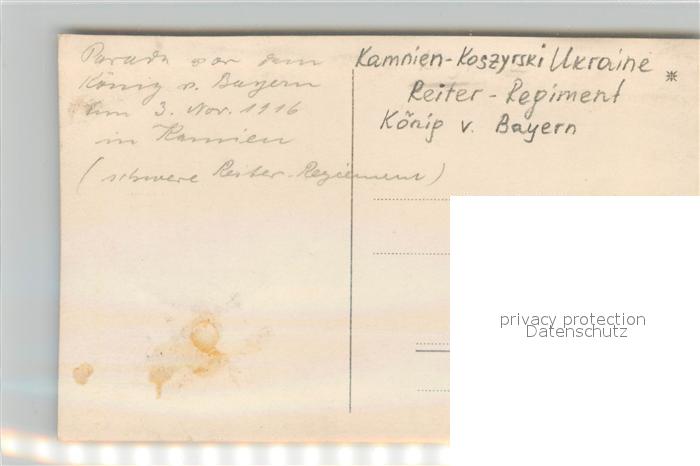 Parade vor dem
König v. Bayern
am 3. Nov. 1916
in Kamien
(schwere Reiter-Regiement)
Kamnien-Koszyrski Ukraine
Reiter-Regiment
König v. Bayern
privacy protection
Datenschutz